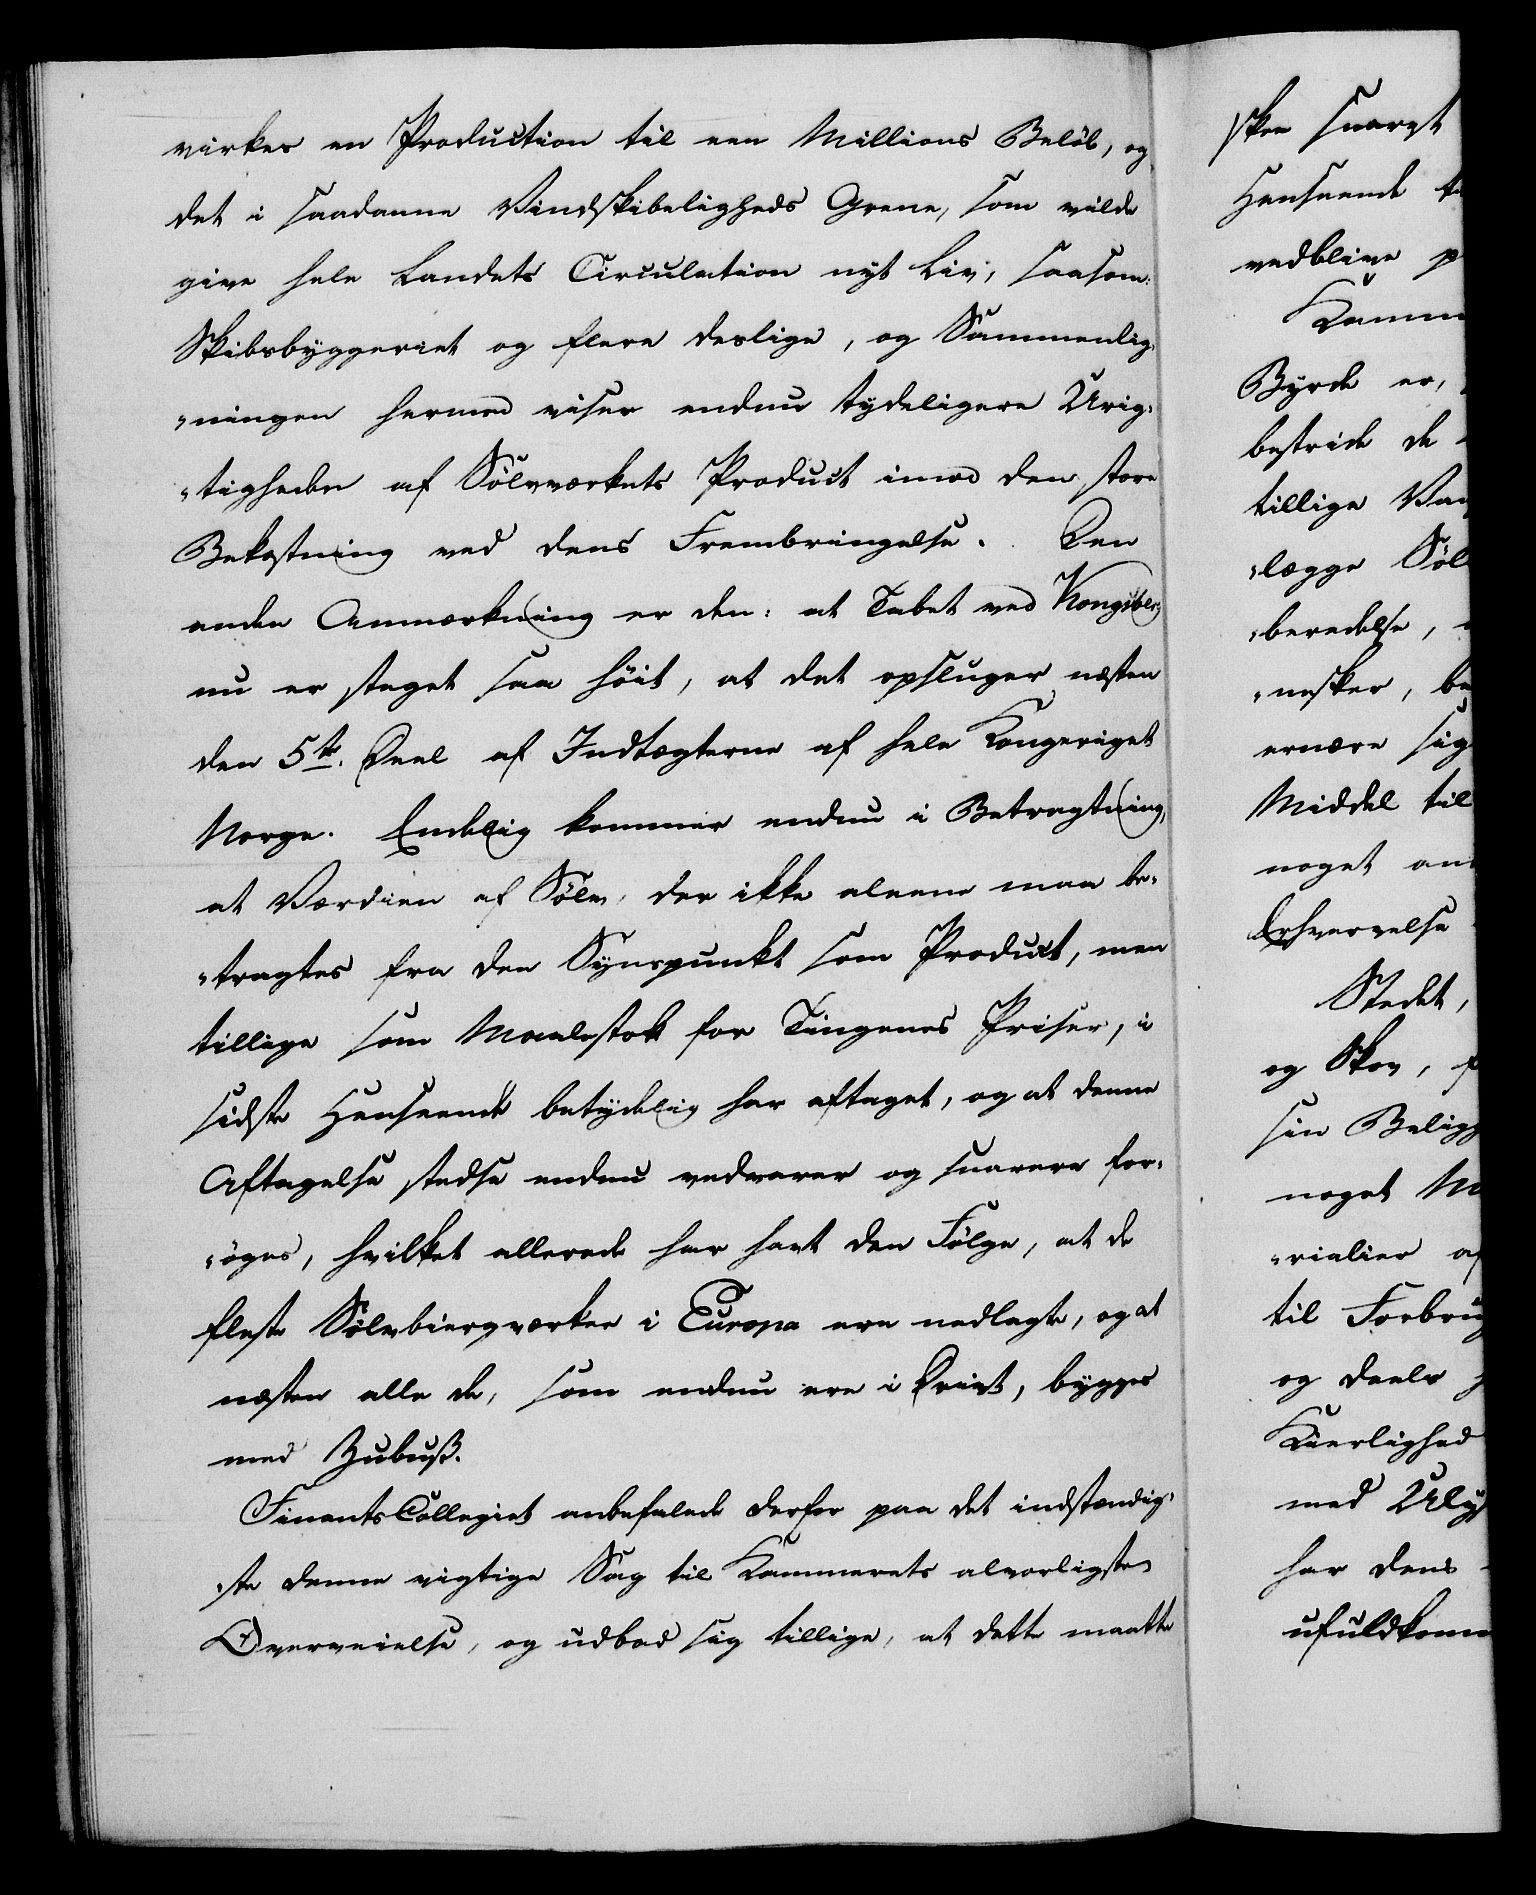 virkes en Production til een Millions Beløb, og
det i saadanne Vindskibeligheds Grene, som vilde
give hele Landets Circulation nyt Liv, saasom:
Skibsbyggeriet og flere deslige, og Sammenlig-
"ningen hermed viser endnu tydeligere Urig-
"tigheden af Sölvværkets Product imod den store
Bekostning ved dens Frembringelse. Den
anden Anmærkning er den: at Tabet ved Kongsberg
nu er steget saa höit, at det opsluger næsten
den 5te. Deel af Indtægterne af hele Kongeriget
Norge. Endelig kommer endnu i Betragtning,
at Værdien af Sölv, der ikke alene maa be-
"tragtes fra den Synspunkt som Product, men
tillige som Maalestok for Tingenes Priser, i
sidste Henseende betydelig har aftaget, og at denne
Aftagelse stedse endnu vedvarer og snarere for-
"öges, hvilket allerede har havt den Fölge, at de
fleste Sölvbiergværker i Europa ere nedlagte, og at
næsten alle de, som endnu ere i Drivt, bygges
med Zubuß.
FinantsCollegiet anbefalede derfor paa det indstændig-
"ste denne vigtige Sag til Kammerets alvorligste
Overveielse, og udbad sig tillige, at dette maatte
skee snarest
Henseende
vedblive
Byrde er,
bestride de
tillige
"lægge
"beredelse,
"nesker,
ernære sig
Middel til
noget
Erhvervelse
Stedet,
og Skov,
sin
noget
"rialier
til
og deels
Kierlighed
med
har dens